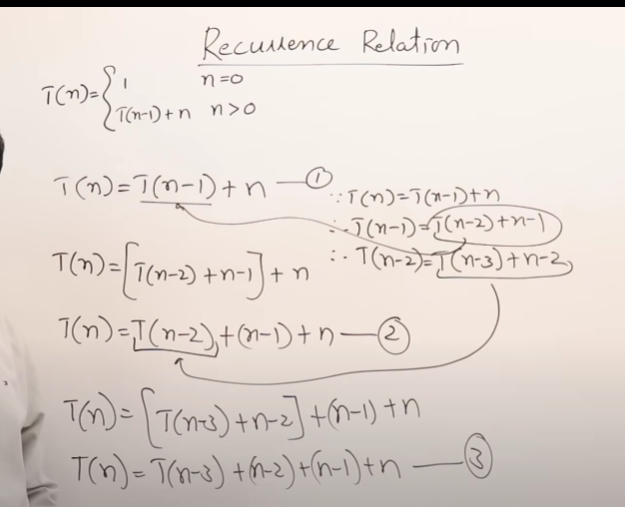 Recurrence Relation
T(n)={1 n=0
T(n-1)+n n>0
T(n)=T(n-1)+n —①
∵T(n)=T(n-1)+n
∴T(n-1)=T(n-2)+n-1
∴T(n-2)=T(n-3)+n-2
T(n)=[T(n-2)+n-1]+n
T(n)=T(n-2)+(n-1)+n —②
T(n)=[T(n-3)+n-2]+(n-1)+n
T(n)=T(n-3)+(n-2)+(n-1)+n —③